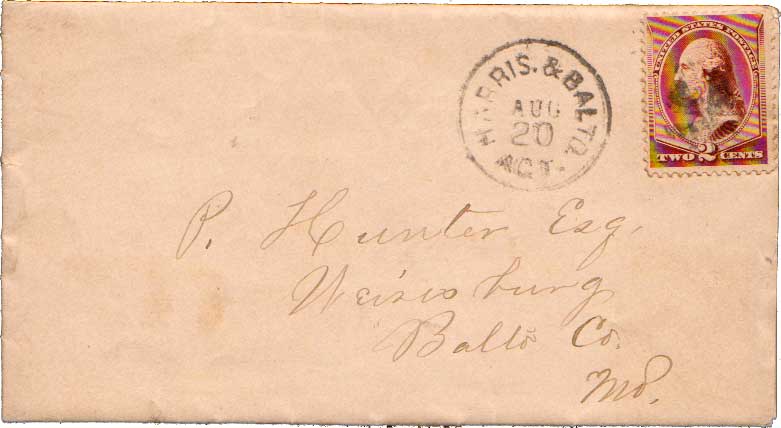 HARRIS. & BALTO.
AUG
20
AGT.
UNITED STATES POSTAGE
TWO 2 CENTS
P. Hunter Esq.
Weisesburg
Balto Co.
Md.